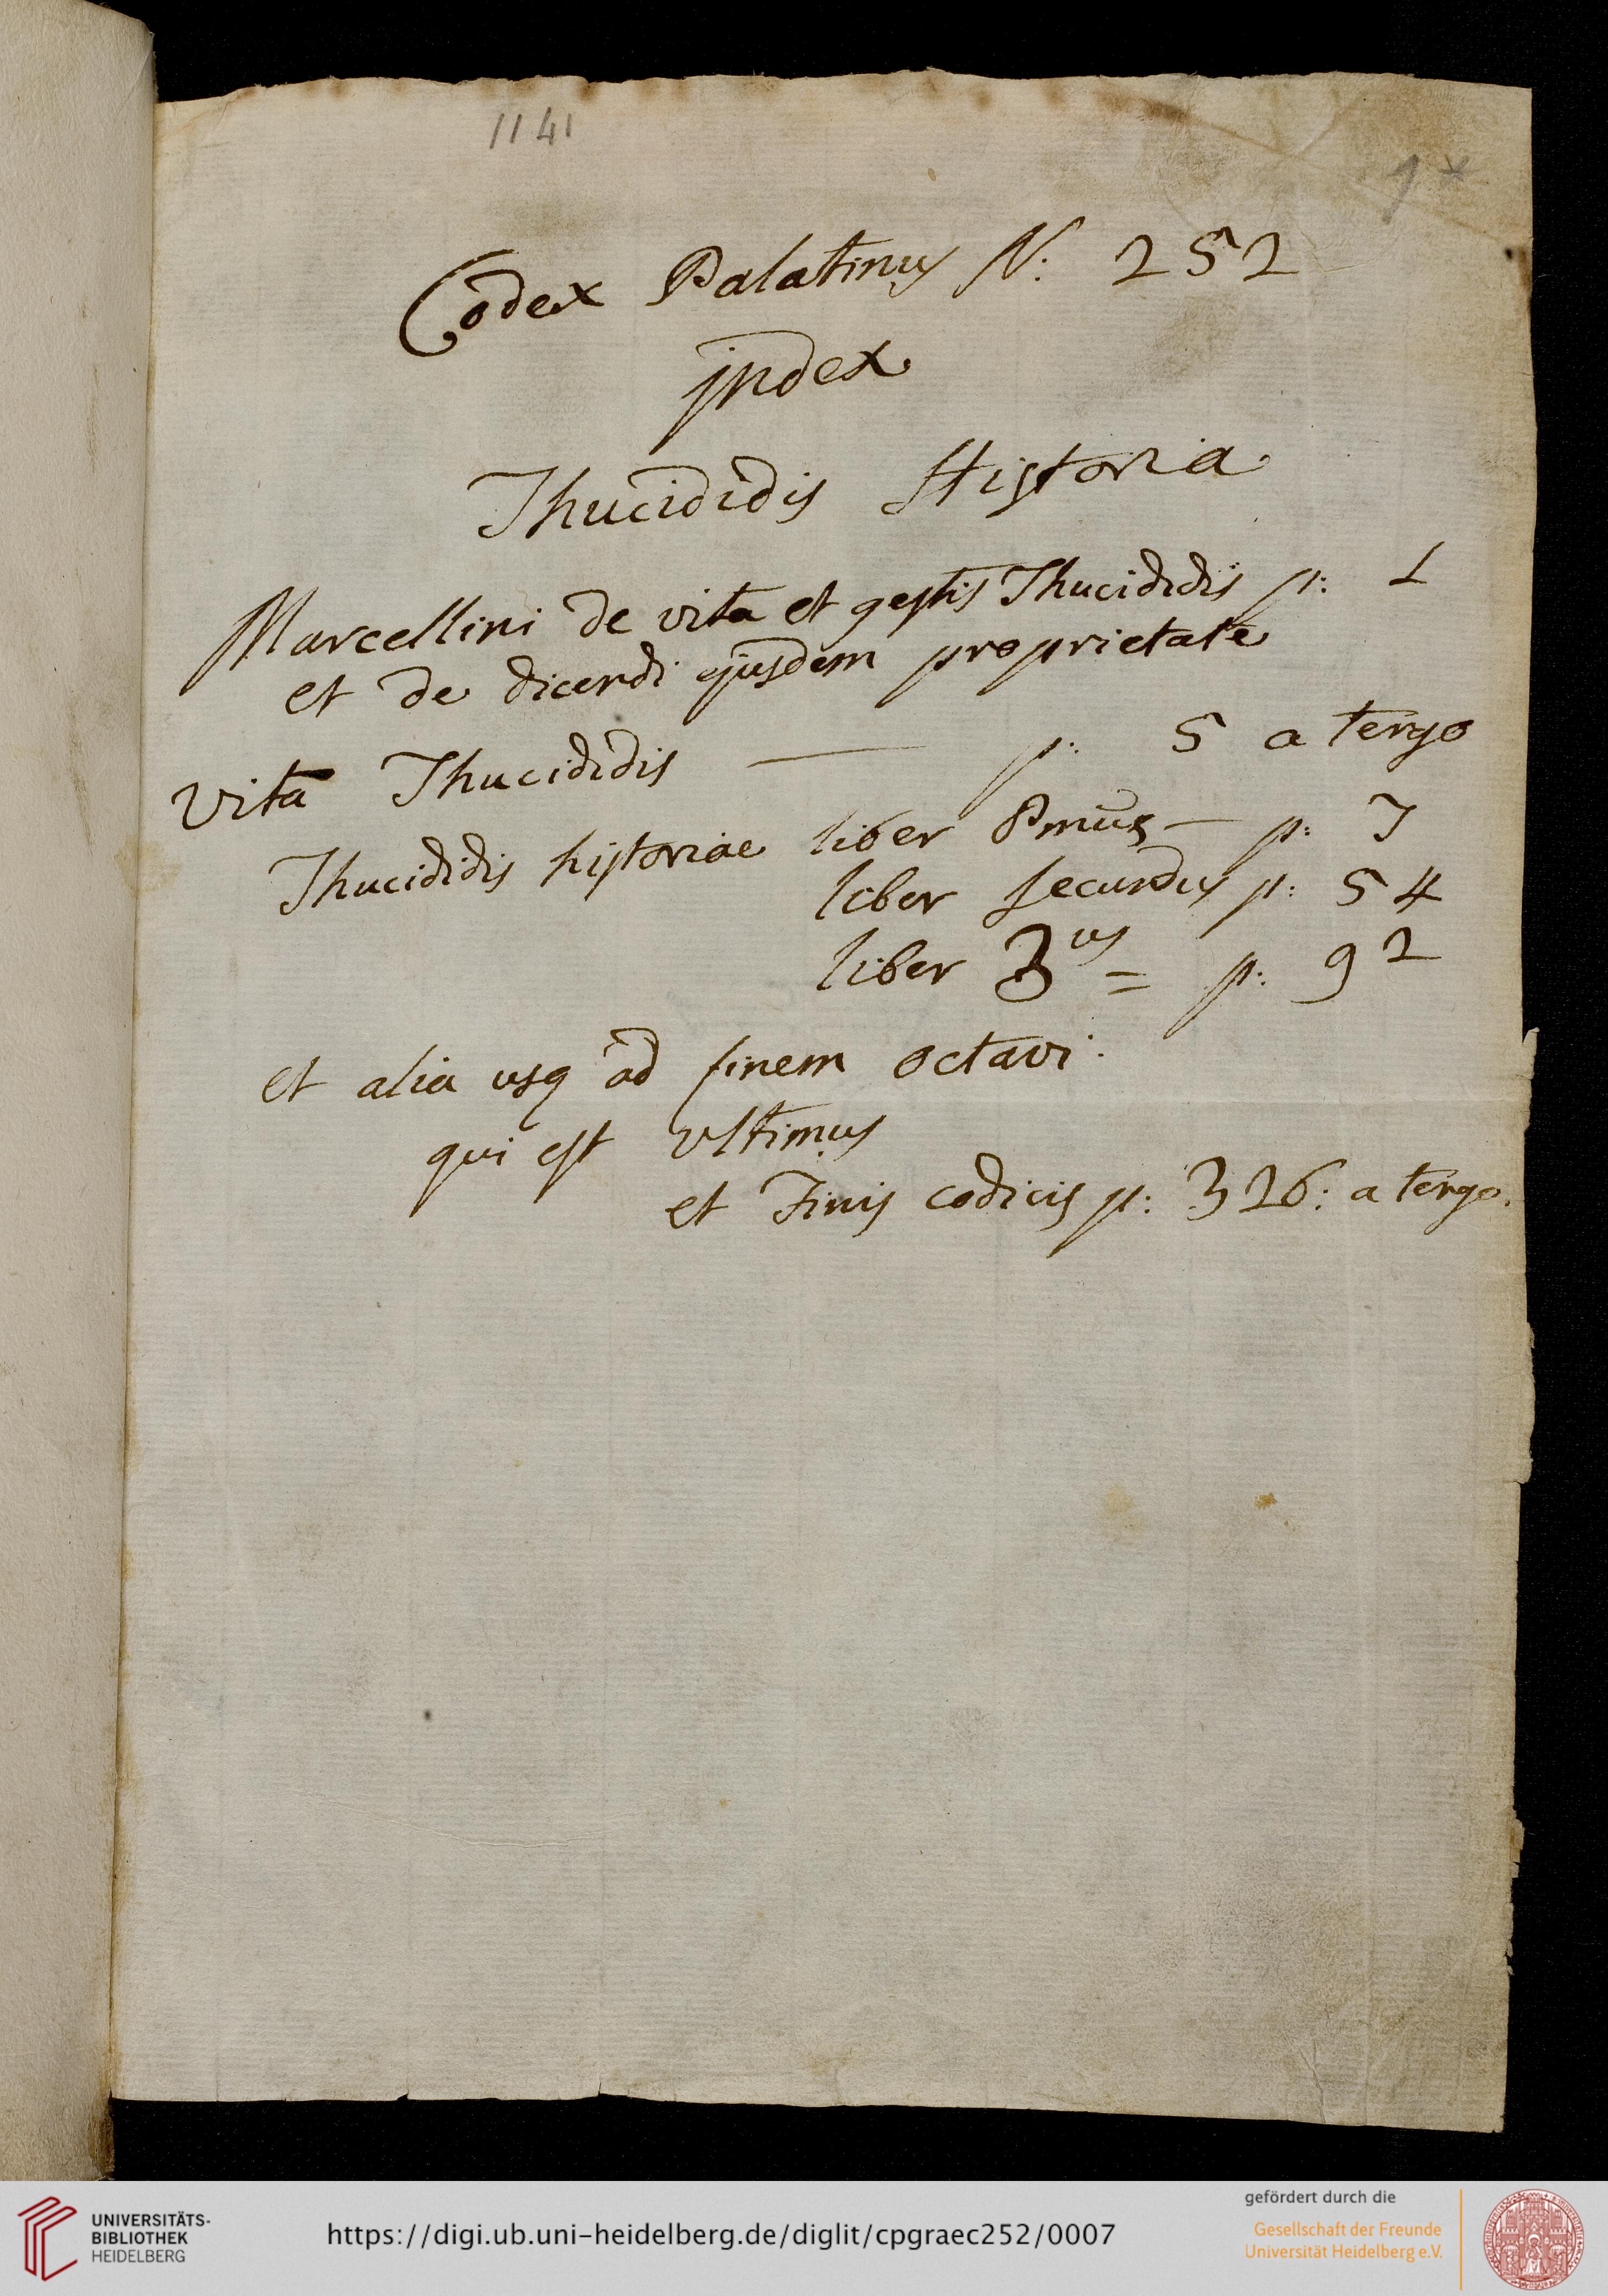 1141
1*
Codex Palatinus N: 252
jndex
Thucididis Historia
Marcellini de vita et gestis Thucididis p: 1
et de dicendi ejusdem proprietate
Vita Thucididis — p: 5 a tergo
Thucididis historiae liber Pmus — p: 7
liber secundus p: 54
liber 3us = p: 92
et alia usq ad finem octavi:
qui est ultimus
et Finis codicis p: 326: a tergo.
UNIVERSITÄTS-
BIBLIOTHEK
HEIDELBERG
https://digi.ub.uni-heidelberg.de/diglit/cpgraec252/0007
gefördert durch die
Gesellschaft der Freunde
Universität Heidelberg e.V.